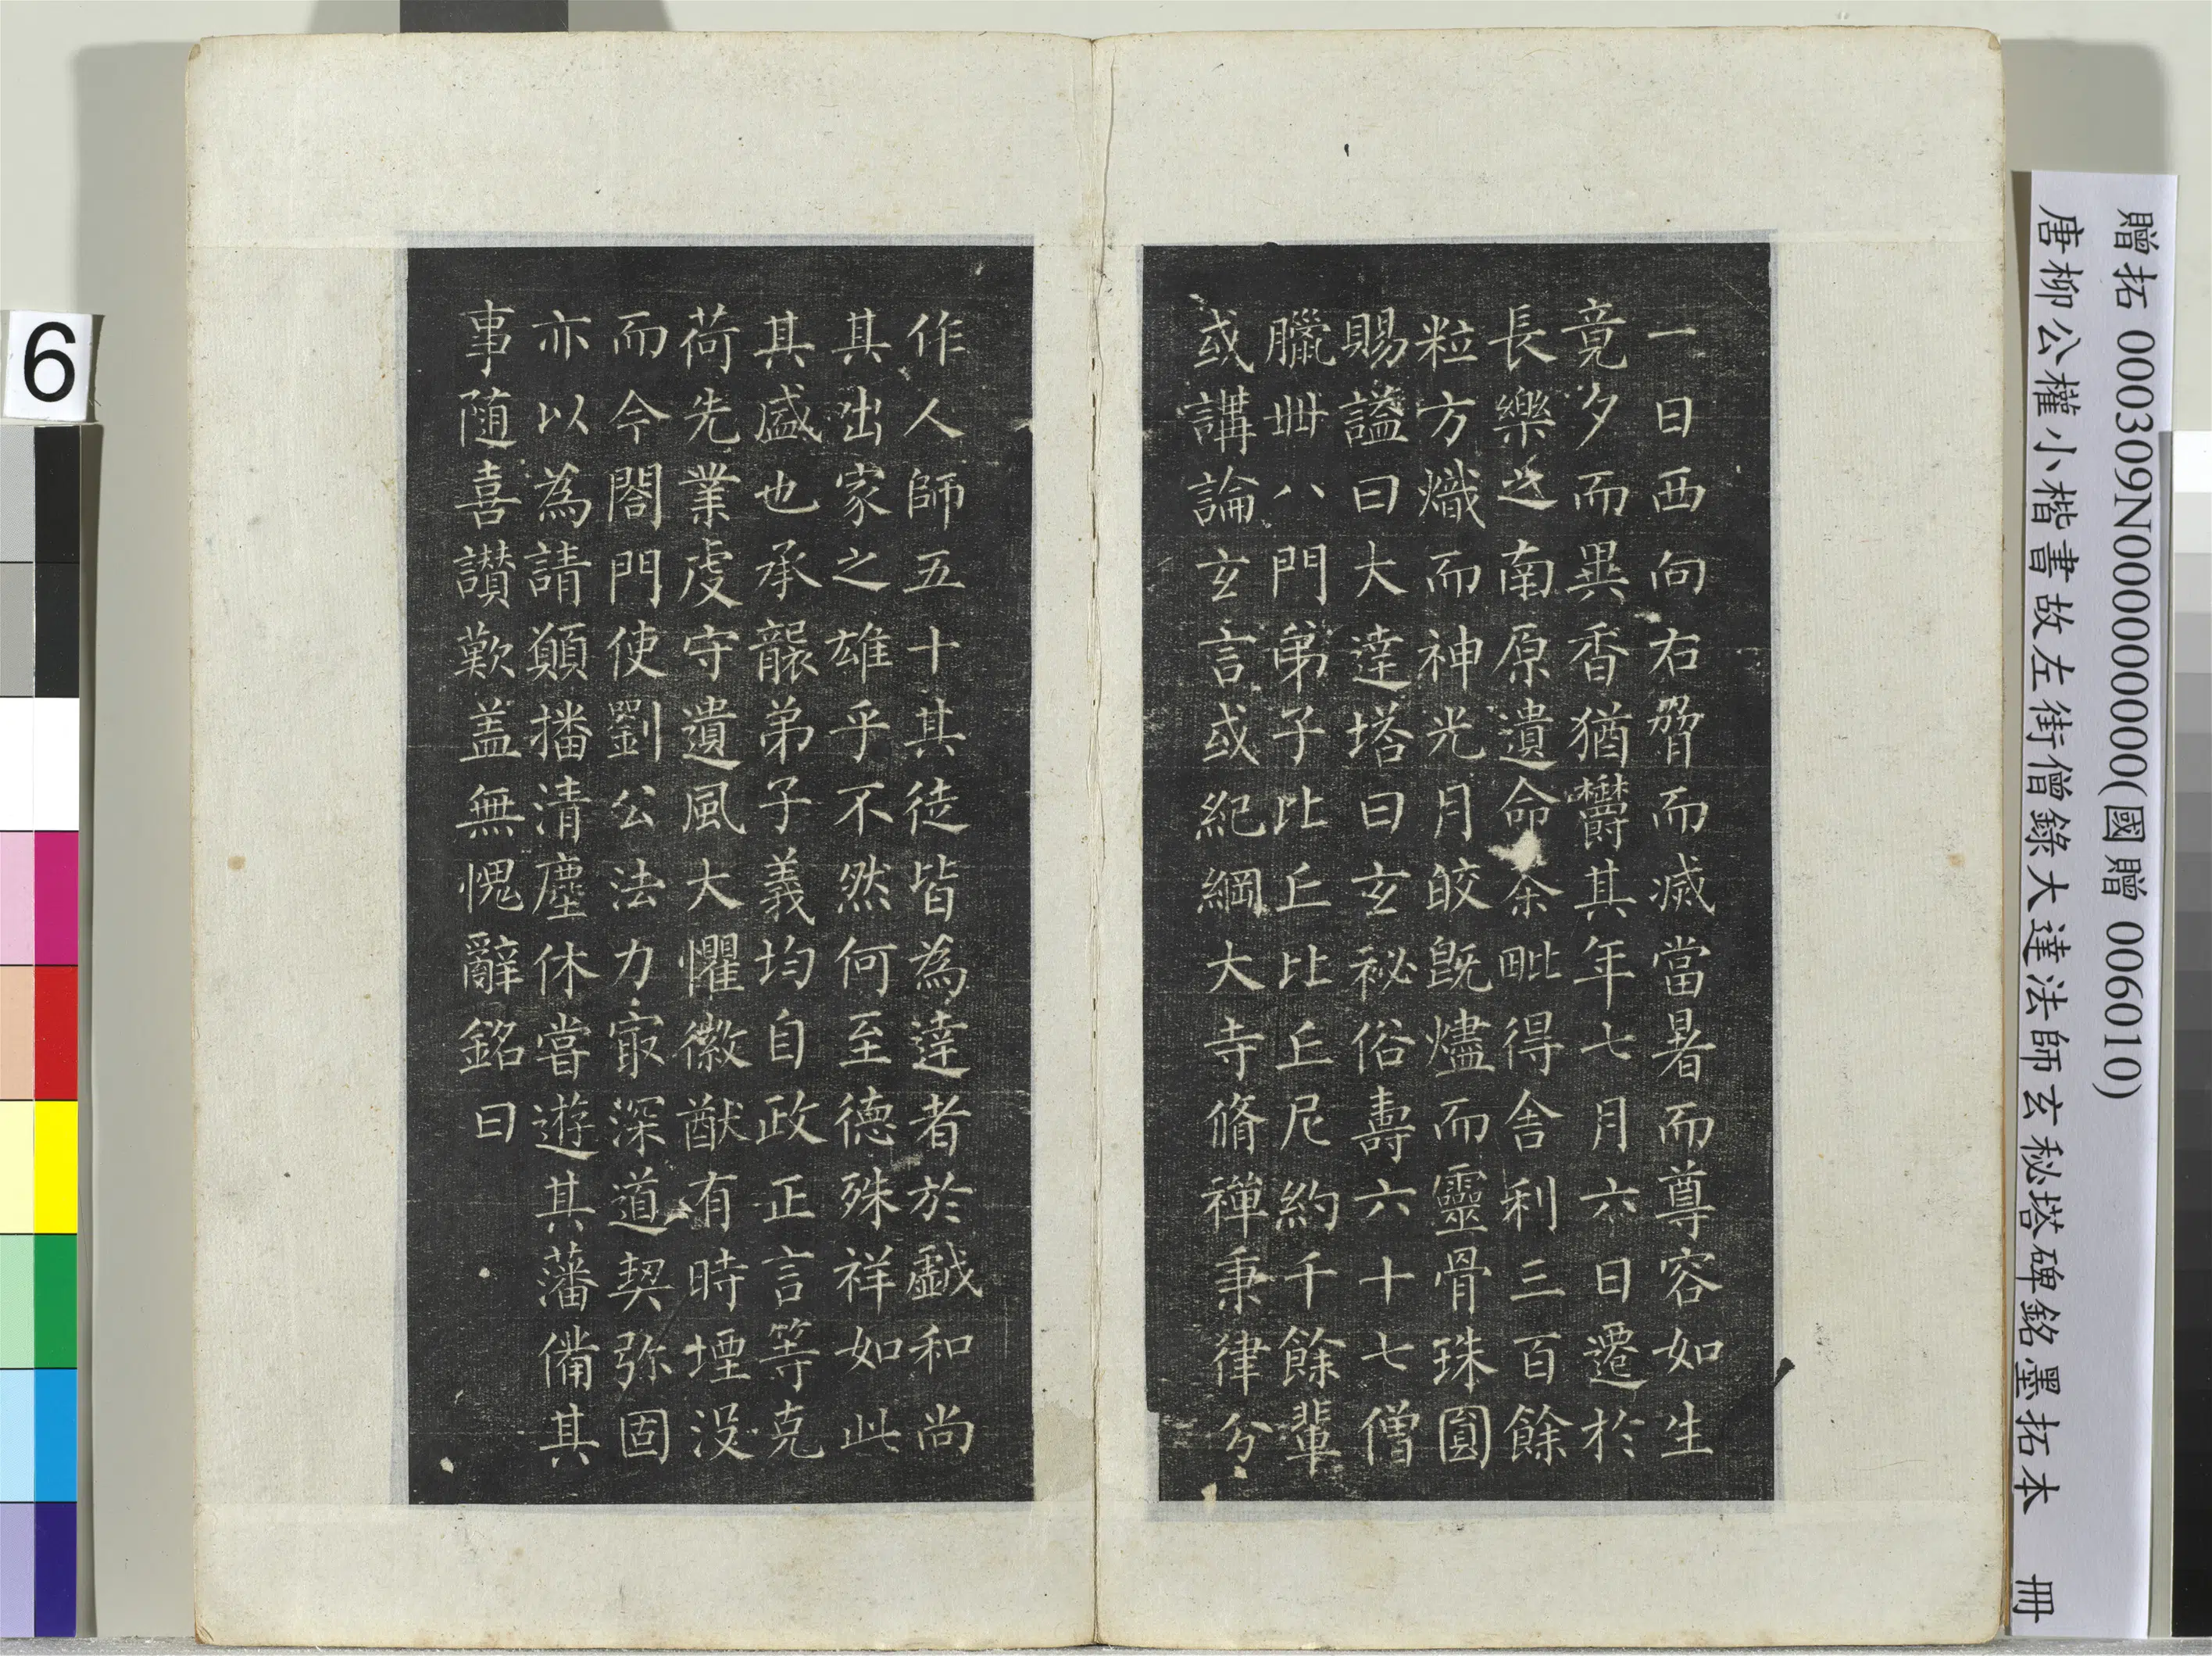 贈拓 000309N000000000(國贈 006010)
唐柳公權小楷書故左街僧錄大達法師玄秘塔碑銘墨拓本 冊
一日西向右脅而滅當暑而尊容如生
竟夕而異香猶欝其年七月六日遷於
長樂之南原遺命荼毗得舍利三百餘
粒方熾而神光月皎既燼而靈骨珠圓
賜謚曰大達塔曰玄秘俗壽六十七僧
臘卌八門弟子比丘比丘尼約千餘輩
或講論玄言或紀綱大寺脩禪秉律分
作人師五十其徒皆為達者於戲和尚
其出家之雄乎不然何至德殊祥如此
其盛也承襲弟子義均自政正言等克
荷先業虔守遺風大懼徽猷有時堙沒
而今閤門使劉公法力冣深道契弥固
亦以為請願播清塵休嘗遊其藩備其
事随喜讃歎盖無愧辭銘曰
6